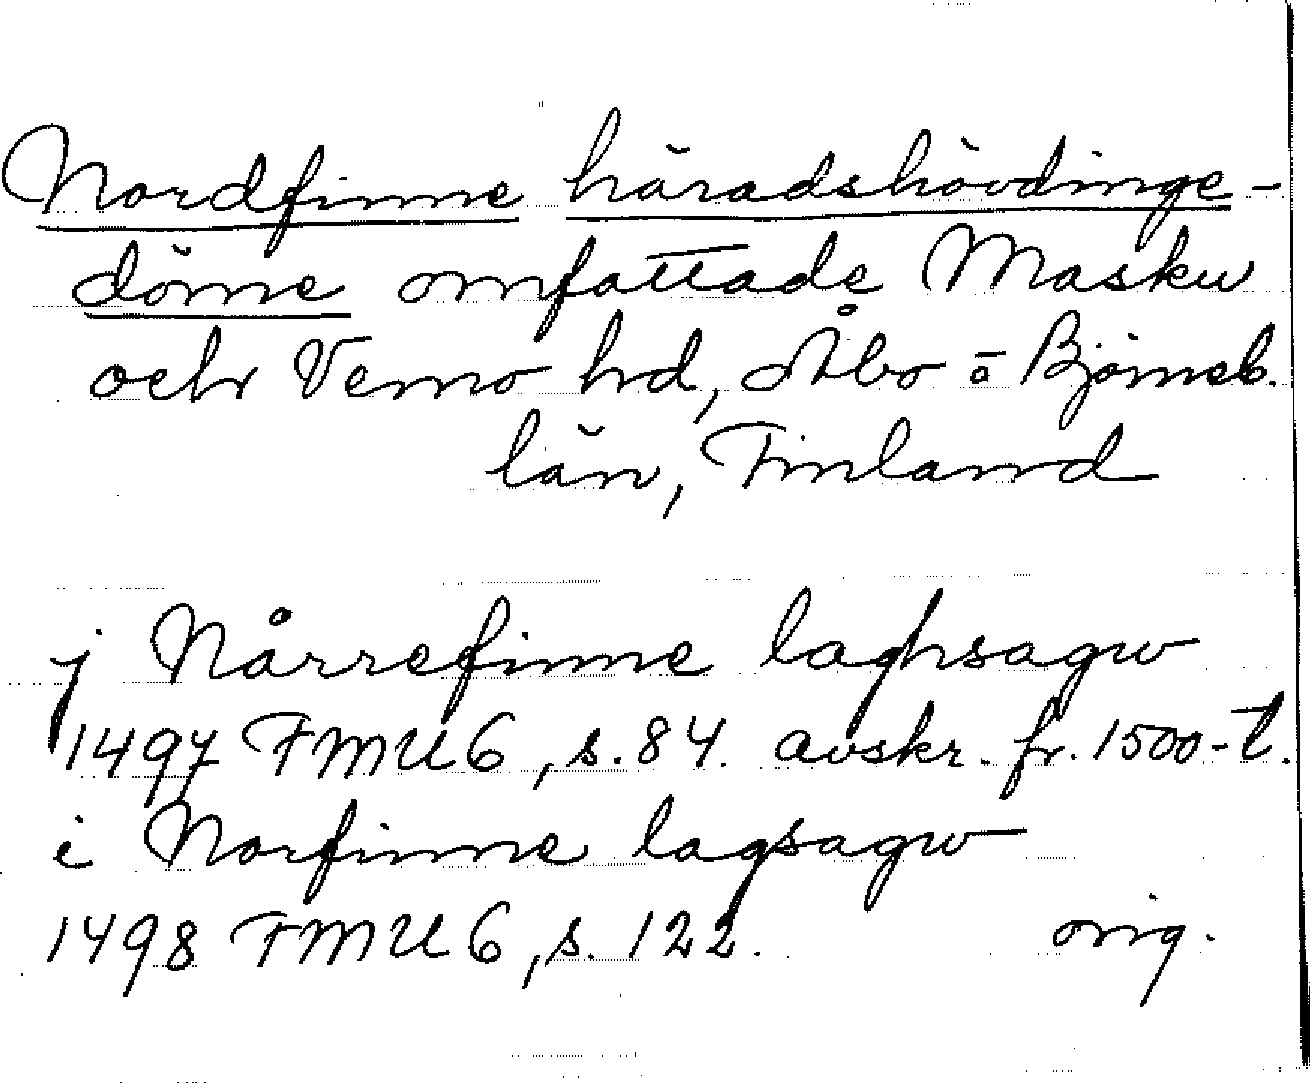 Nordfinne häradshövdinge-
döme omfattade Masku
och Vemo hd, Åbo o Björneb.
län, Finland
j Nårrefinne laghsagw
1497 FMU 6, s. 84. avskr. fr. 1500-t.
i Norfinne lagsagw
1498 FMU 6, s. 122. orig.